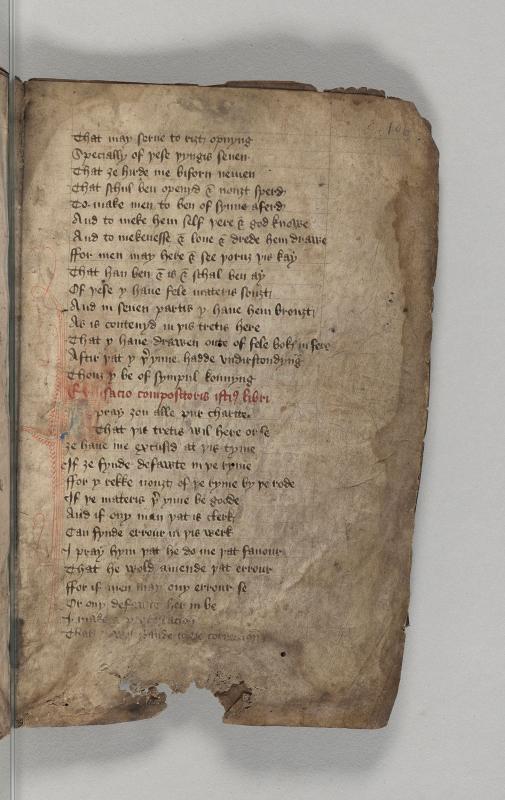 106
That may serue to riȝt opnyng
Specially of þese þyngis seuen
That ȝe hirde me biforn neuen
That schul ben openyd & nouȝt sperd
To make men to ben of synne aferd
And to meke hem self þere & god knowe
And to mekenesse & loue & drede hem drawe
ffor men may here & see þoruȝ þis kay
That han ben & is & schal ben ay
Of þese y haue fele materis souȝt
And in seuen partis y haue hem brouȝt
As is contenyd in þis tretis here
That y haue drawen oute of fele bokis in fere
Aftir þat y þer ynne hadde vndirstondyng
Thouȝ y be of sympul konnyng
compositoris istius libri
pray ȝou alle pur charite
That þis tretis wil here or se
ȝe haue me excusid at þis tyme
If ȝe fynde defawte in þe ryme
ffor y rekke nouȝt of þe ryme by þe rode
If þe materis þer ynne be goode
And if ony man þat is clerk
Can fynde errour in þis werk
I pray hym þat he do me þat fauour
That he wold amende þat errour
ffor if men may ony errour se
Or ony defawte her in be
I make a protestacion
That y wil stande to þe correccion